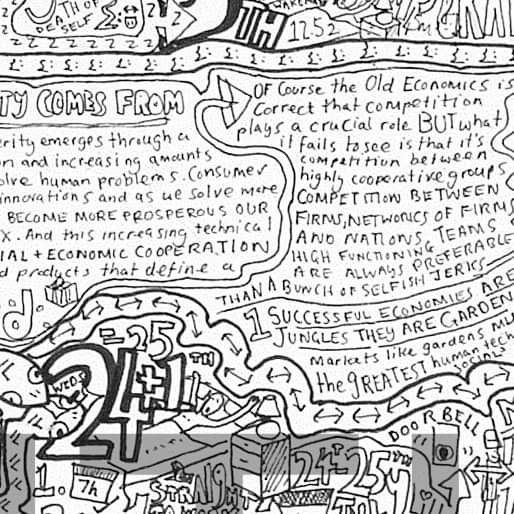 DEATH OF
SELF
TH
12.52
TY COMES FROM
erity emerges through a
n and increasing amounts
olve human problems. Consumer
innovations and as we solve more
BECOME MORE PROSPEROUS OUR
X. And this increasing technical
IAL + ECONOMIC COOPERATION
d products that define a
d.
OF COurse the Old Economics is
Correct that competition
plays a crucial role BUT what
it fails to see is that it's
competition between
highly cooperative groups
COMPETITION BETWEEN
FIRMS, NETWORKS OF FIRMS
AND NATIONS. TEAMS
HIGH FUNCTIONING
ARE ALWAYS PREFERABLE
THAN A BUNCH OF SELFISH JERKS
1 SUCCESSFUL ECONOMIES ARE
JUNGLES THEY ARE GARDEN
Markets like gardens MU
the GREATEST human tech
SOCIAL
=25
24+1TH
WEDS
DOOR BELL
1. 7h
STRAIGHT
TO WORK
24th-25TH
JULY